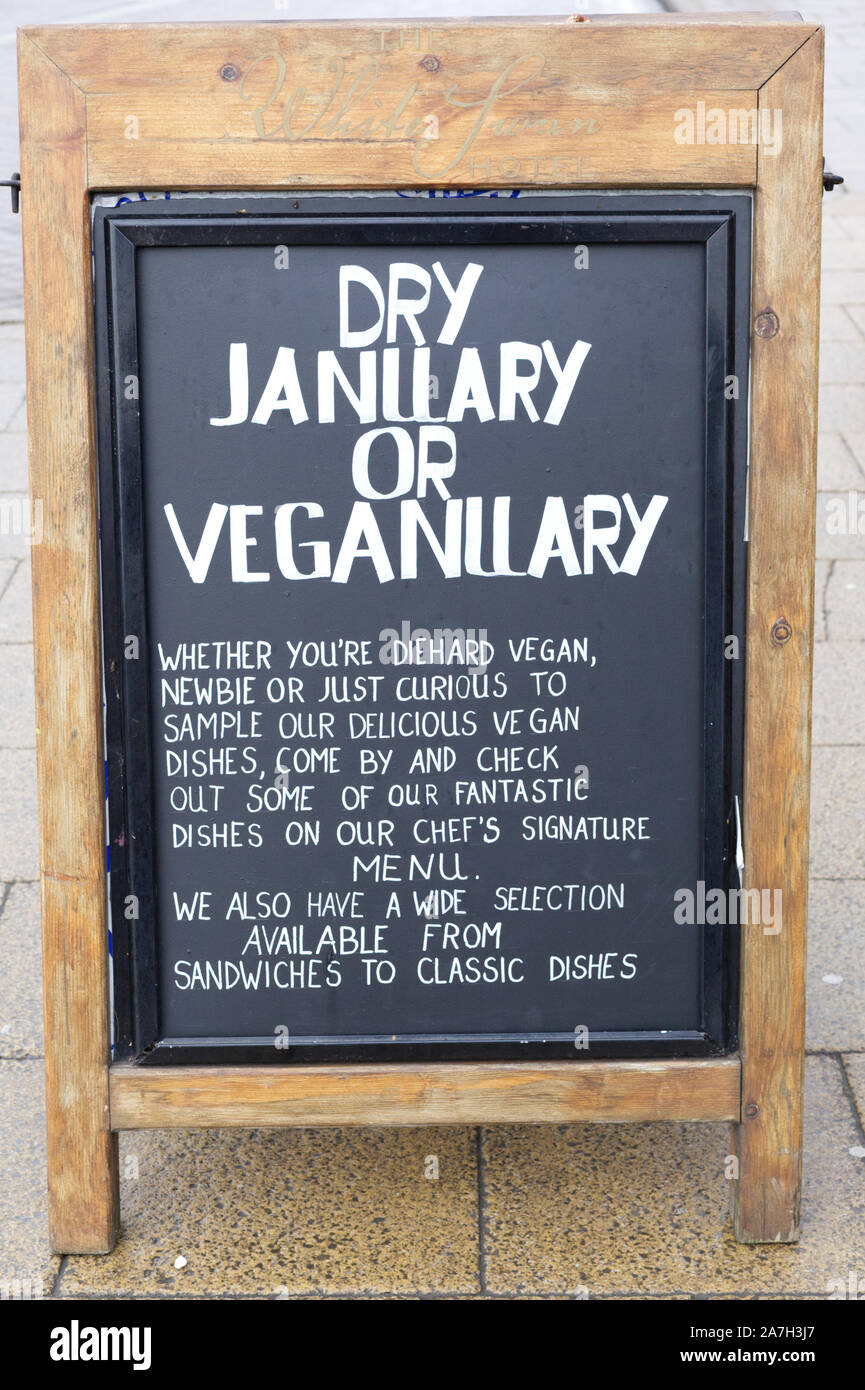 THE
White Swan
HOTEL
DRY
JANUARY
OR
VEGANUARY
WHETHER YOU'RE DIEHARD VEGAN,
NEWBIE OR JUST CURIOUS TO
SAMPLE OUR DELICIOUS VEGAN
DISHES, COME BY AND CHECK
OUT SOME OF OUR FANTASTIC
DISHES ON OUR CHEF'S SIGNATURE
MENU.
WE ALSO HAVE A WIDE SELECTION
AVAILABLE FROM
SANDWICHES TO CLASSIC DISHES
alamy
Image ID: 2A7H3J7
www.alamy.com